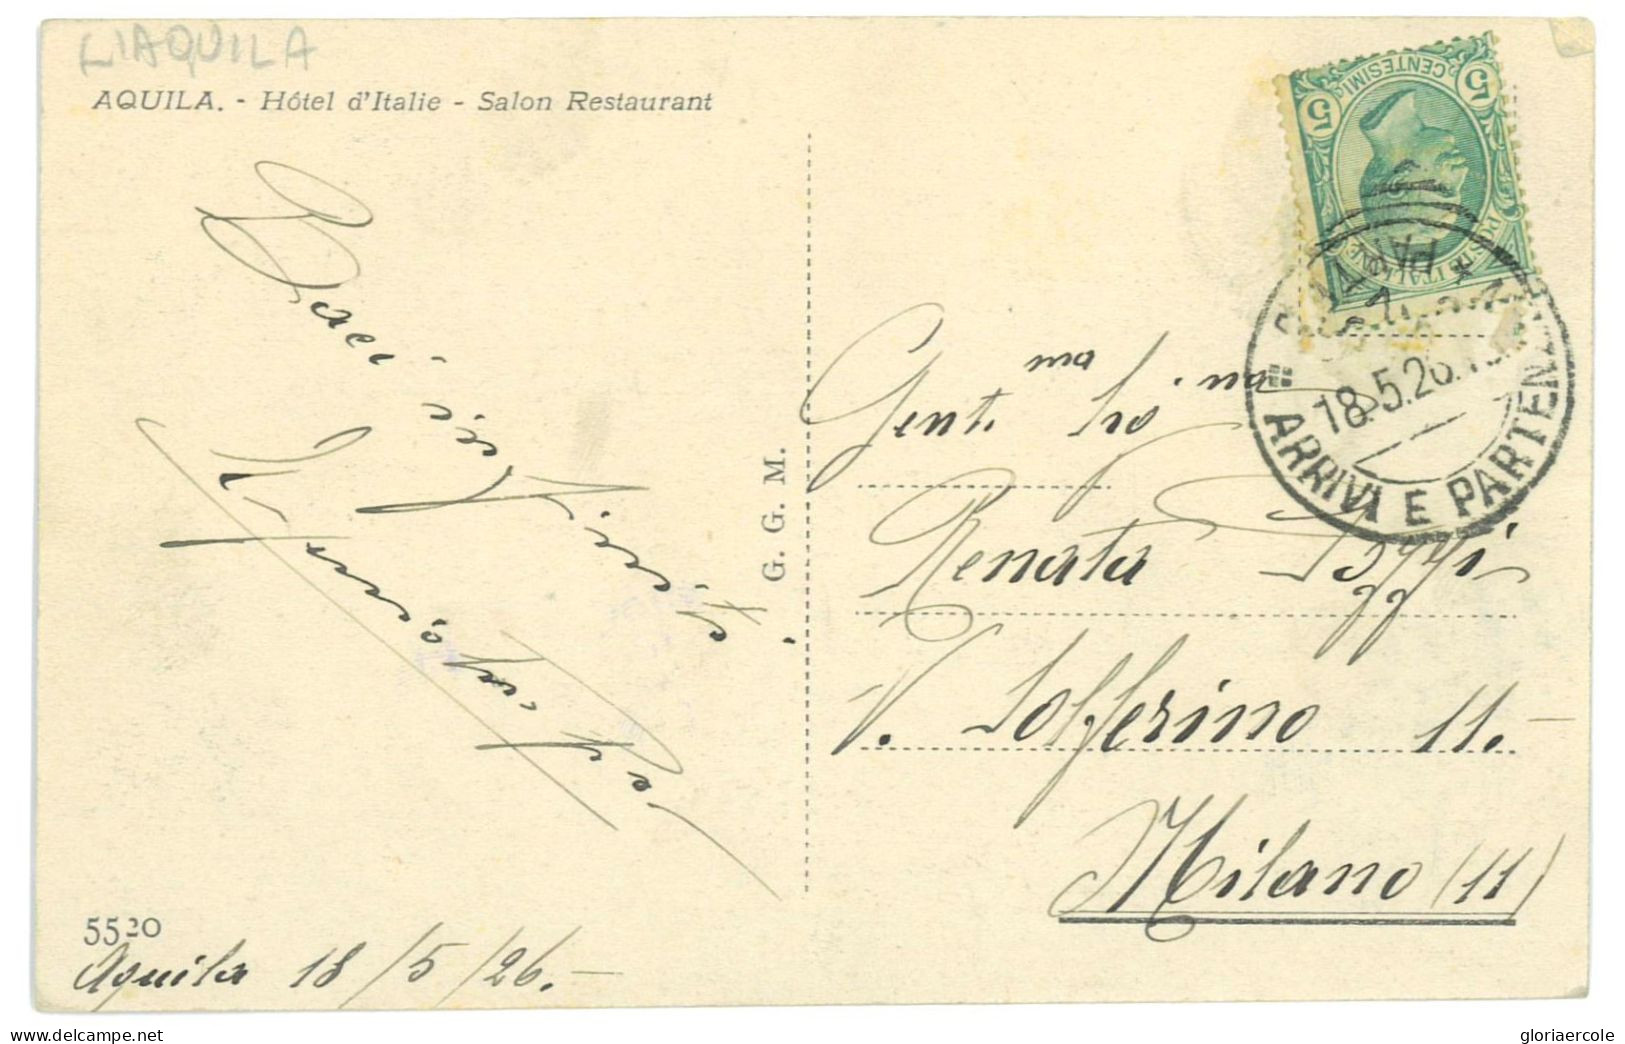 L'AQUILA
AQUILA. - Hôtel d'Italie - Salon Restaurant
5 CENTESIMI 5
POSTE ITALIANE
18.5.26.
ARRIVI E PARTENZE
Baci
G. G. M.
Gent.ma Sig.na
Renata Poggi
V. Solferino 11.-
Milano (11)
5520
Aquila 18/5/26.-
gloriaercole
www.delcampe.net